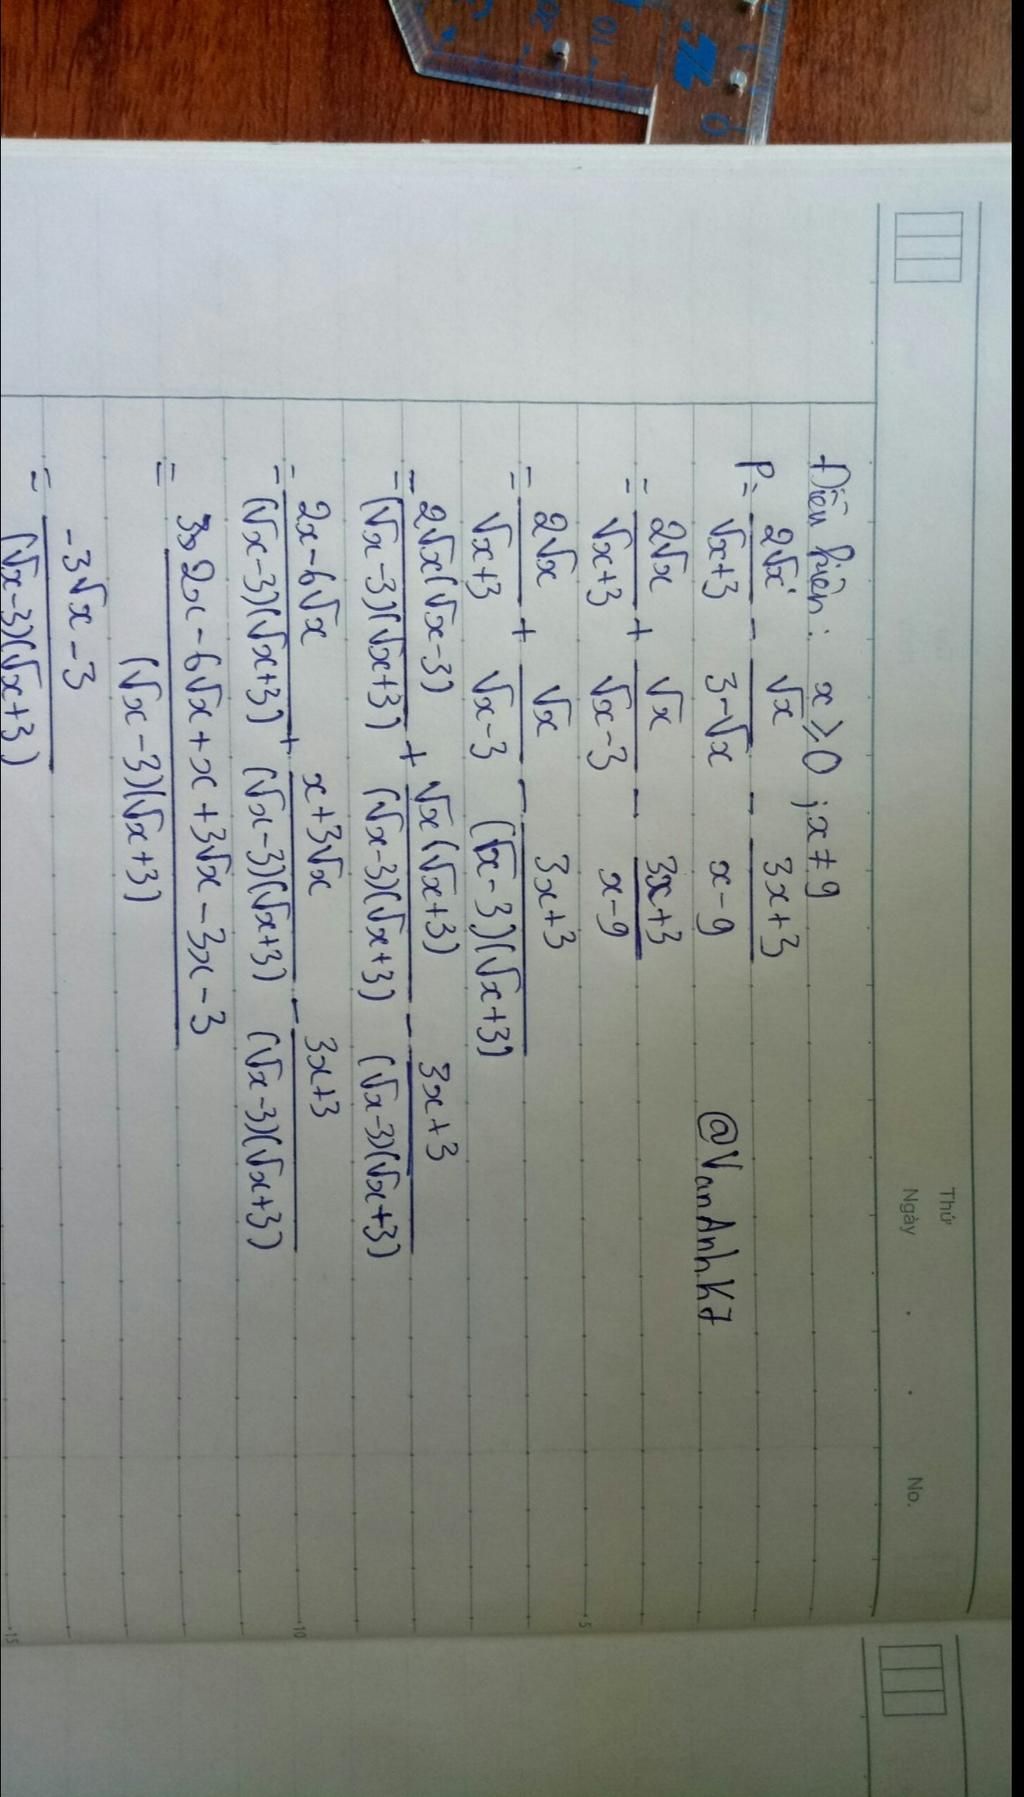 Thứ
Ngày . . No.
Điều kiện: x ≥ 0 ; x ≠ 9
P = 2√x / (√x+3) - √x / (3-√x) - (3x+3) / (x-9)
@VanAnhK7
= 2√x / (√x+3) + √x / (√x-3) - (3x+3) / (x-9)
= 2√x / (√x+3) + √x / (√x-3) - (3x+3) / ((√x-3)(√x+3))
= 2√x(√x-3) / ((√x-3)(√x+3)) + √x(√x+3) / ((√x-3)(√x+3)) - (3x+3) / ((√x-3)(√x+3))
= (2x-6√x) / ((√x-3)(√x+3)) + (x+3√x) / ((√x-3)(√x+3)) - (3x+3) / ((√x-3)(√x+3))
= (2x-6√x+x+3√x-3x-3) / ((√x-3)(√x+3))
= (-3√x-3) / ((√x-3)(√x+3))
5
10
15
0
10